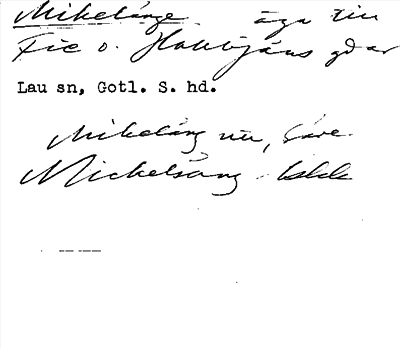 Mikelänge äga till
Fie o. Hallbjäns gdar
Lau sn, Gotl. S. hd.
Mikeläng
Mickelsäng